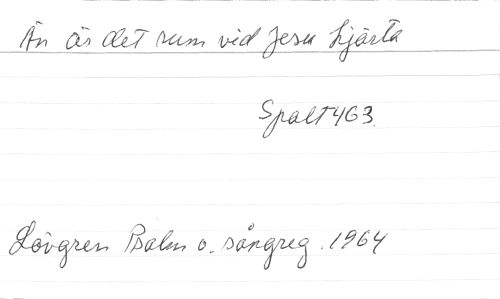 Än är det rum vid Jesu hjärta
Spalt 463.
Lövgren Psalm o. sångreg. 1964